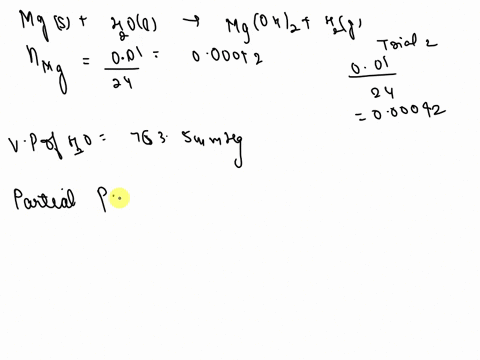 Mg(s) + H2O(l) → Mg(OH)2 + H2(g)
nMg = 0.01/24 = 0.00042
Trial 2
0.01/24
= 0.00042
V.P of H2O = 763.5mmHg
Partial P